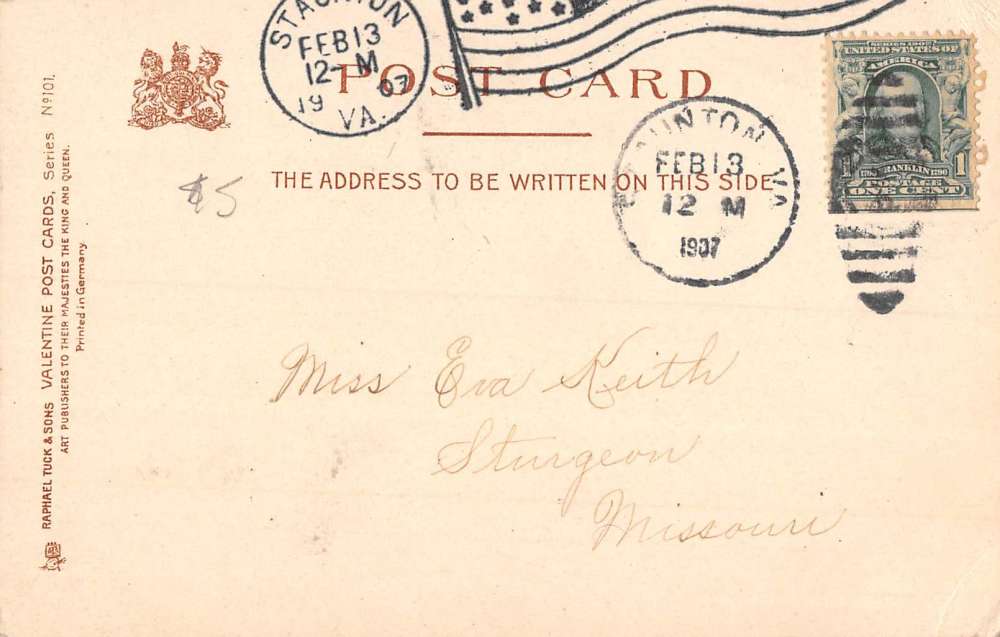 STAUNTON
FEB 13
12- M
19 07
VA.
POST CARD
SERIES 1902
UNITED STATES OF
AMERICA
1 FRANKLIN 1
1706 1790
POSTAGE
ONE CENT
STAUNTON VA
FEB 13
12 M
1907
THE ADDRESS TO BE WRITTEN ON THIS SIDE
$5
Miss Eva Keith
Sturgeon
Missouri
RAPHAEL TUCK & SONS VALENTINE POST CARDS, Series Nº 101.
ART PUBLISHERS TO THEIR MAJESTIES THE KING AND QUEEN.
Printed in Germany